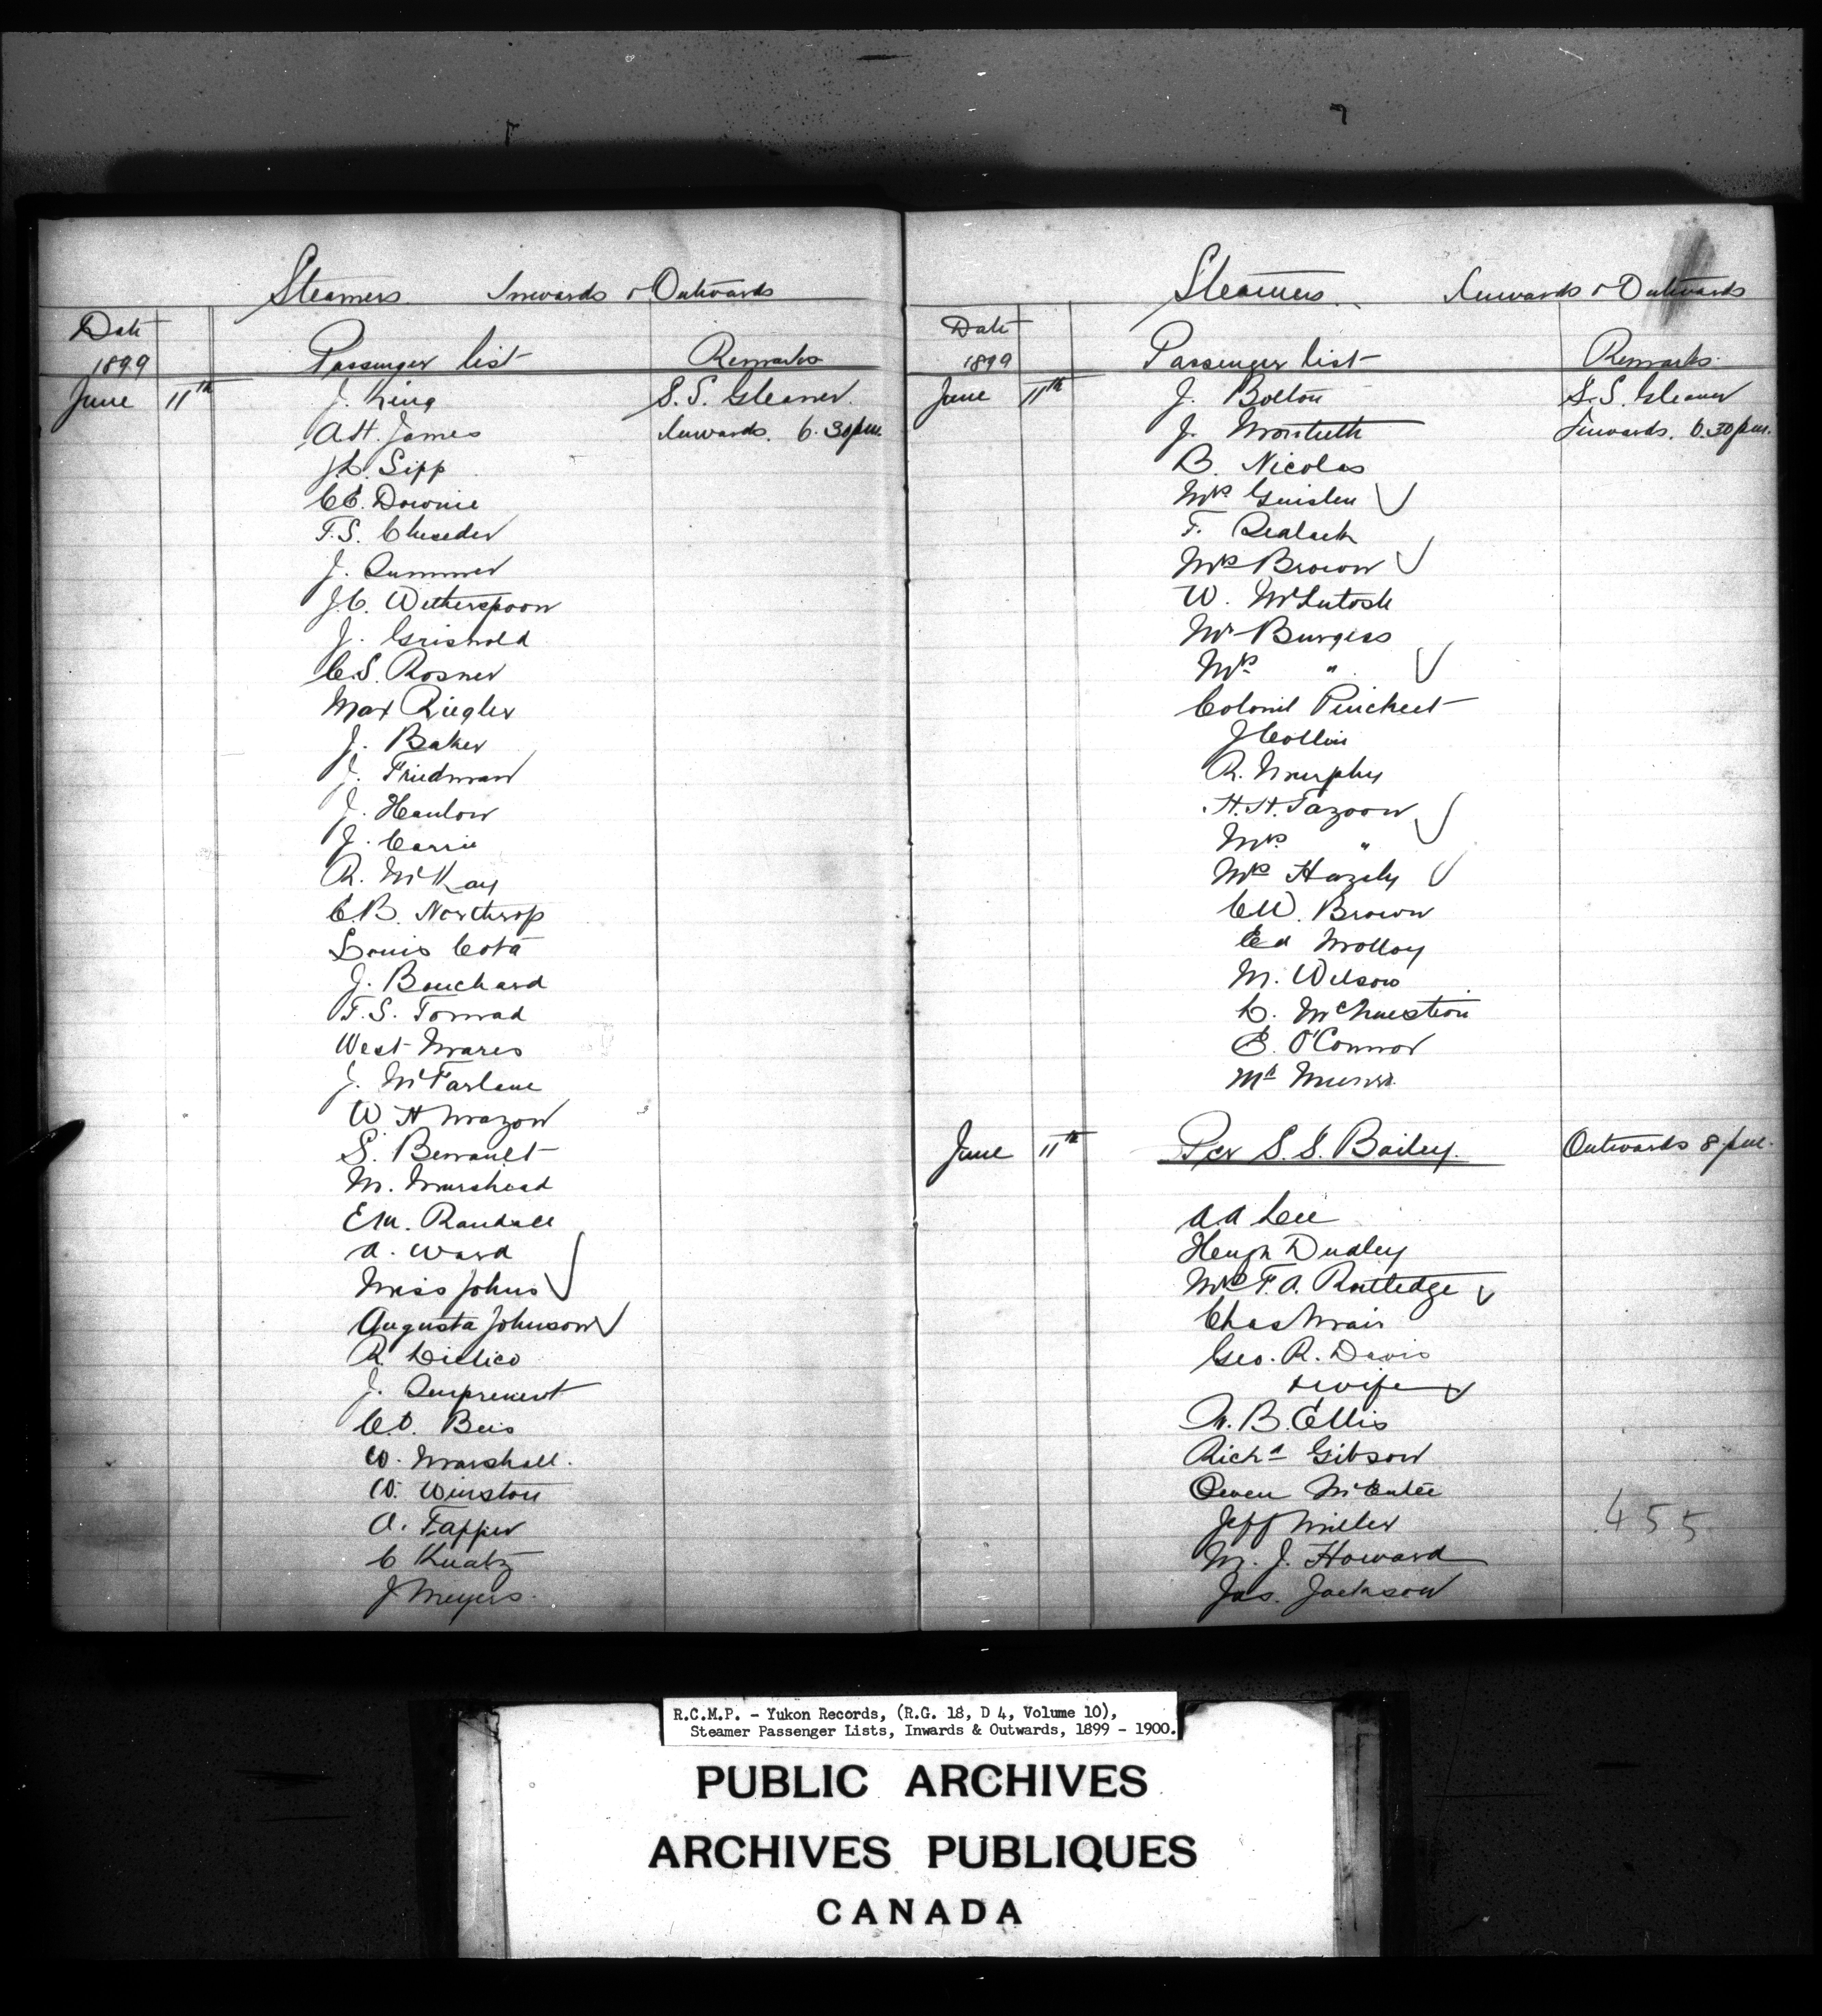 Steamers. Inwards & Outwards
Date
1899 Passenger List Remarks
June 11th J. King S.S. Gleaner.
A.H. James Inwards. 6.30 p.m.
J.L. Sipp
C.E. Downie
F.S. Cheseder
J. Summer
J.C. Witherspoon
J. Griswold
C.S. Rosner
Max Riegler
J. Baker
J. Friedman
J. Hanlow
J. Carrie
R. McKay
C.B. Northrop
Louis Cota
J. Bouchard
F.S. Torwad
West Mares
J. McFarlane
W H Mazow
S. Berrault
M. Murshead
E.M. Randall
A. Ward
Miss Johns
Augusta Johnson
R.
J. Surprenent
C.D. Beis
W. Marshall.
W. Winston
A. Tapper
C Kuatz
J Meyers.
Steamers. Inwards & Outwards
Date
1899 Passenger List Remarks.
June 11th J. Bolton S.S. Gleaner
J. Monteith Inwards. 6.30 p.m.
B. Nicolas
Mrs Guislen
F.
Mrs Brown
W. McIntosh
Mr Burgess
Mrs "
Colonel Pinchest
J Collin
R. Murphy
H.H. Tazoon
Mrs "
Mrs Hazely
C.W. Brown
Ed Molloy
M. Wilson
L. McQuestion
E. O'Connor
Md Munro.
June 11th Per S.S. Bailey. Outwards 8 p.m.
A A Lee
Hugh Dudley
Mrs F.A. Routledge
Chas Mair
Geo. R. Davis
& wife
W.B. Ellis
Richd Gibson
Owen McEntee
Jeff Miller
M. J. Howard
Jas. Jackson
455
R.C.M.P. - Yukon Records, (R.G. 18, D 4, Volume 10),
Steamer Passenger Lists, Inwards & Outwards, 1899 - 1900.
PUBLIC ARCHIVES
ARCHIVES PUBLIQUES
CANADA